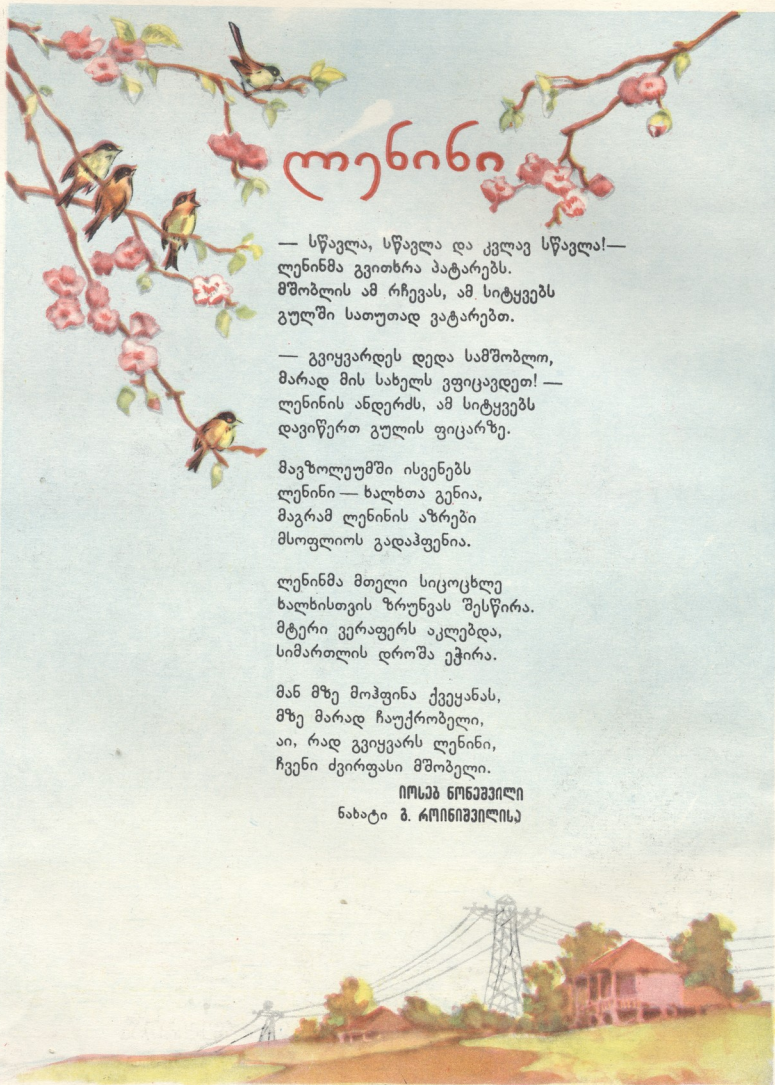 ლენინი
— სწავლა, სწავლა და კვლავ სწავლა!—
ლენინმა გვითხრა პატარებს.
მშობლის ამ რჩევას, ამ სიტყვებს
გულში სათუთად ვატარებთ.
— გვიყვარდეს დედა სამშობლო,
მარად მის სახელს ვფიცავდეთ! —
ლენინის ანდერძს, ამ სიტყვებს
დავიწერთ გულის ფიცარზე.
მავზოლეუმში ისვენებს
ლენინი — ხალხთა გენია,
მაგრამ ლენინის აზრები
მსოფლიოს გადაჰფენია.
ლენინმა მთელი სიცოცხლე
ხალხისთვის ზრუნვას შესწირა.
მტერი ვერაფერს აკლებდა,
სიმართლის დროშა ეჭირა.
მან მზე მოჰფინა ქვეყანას,
მზე მარად ჩაუქრობელი,
აი, რად გვიყვარს ლენინი,
ჩვენი ძვირფასი მშობელი.
იოსებ ნონეშვილი
ნახატი გ. როინიშვილისა